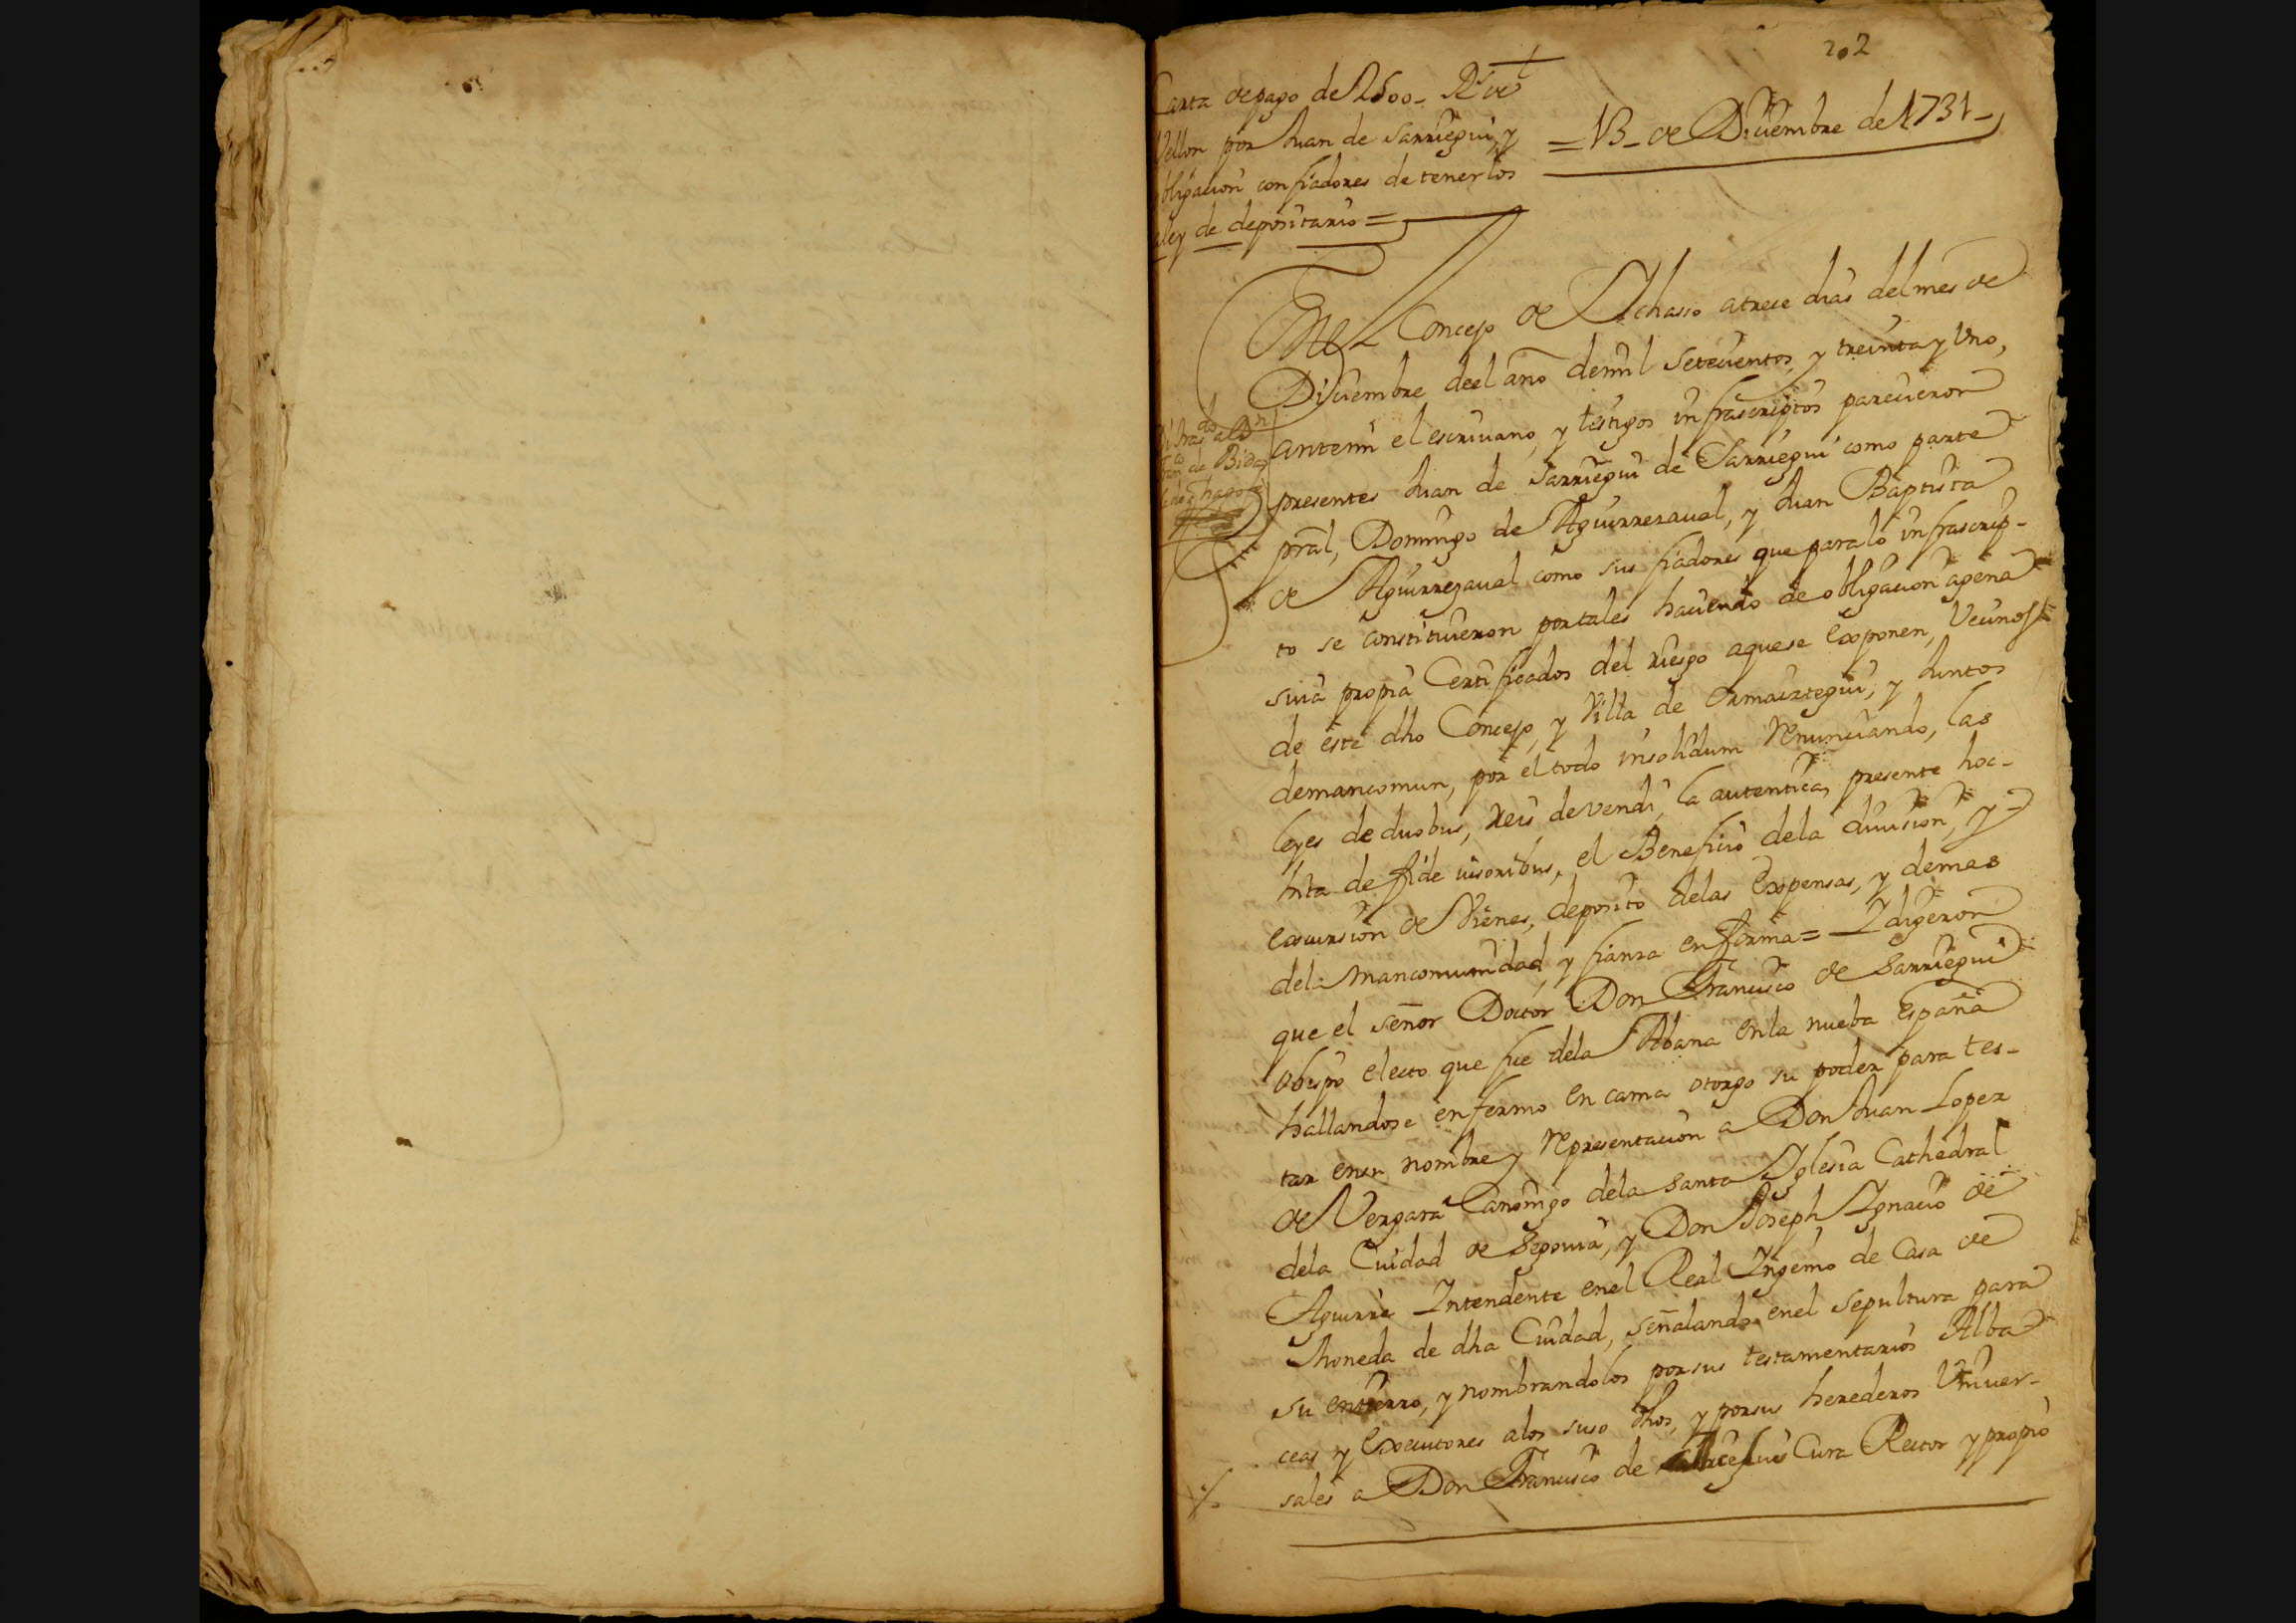 202
Carta de pago de 2500_ Rs de
Vellon por Juan de Sarriegui, y
obligacion con fiadores de tenerlos
a ley de depositario =
= 13_ de Diciembre de 1731_
En el Concejo de Ichasso a trece dias del mes de
Diciembre deel año de mil setecientos, y treinta y Uno,
ante mi el escrivano, y testigos infrascriptos parecieron
presentes Juan de Sarriegui de Sarriegui como parte
pral, Domingo de Aguirrezaual, y Juan Baptista
de Aguirrezaual como sus fiadores que para lo infrascrip-
to se constituieron por tales haciendo de obligacion agena
suia propia Certificados del riesgo aquese Exponen, Vecinos
de este dho Concejo, y Villa de Ormaiztegui, y Juntos
de mancomun, por el todo insolidum Renunciando, las
leyes de duobus, Reis devendi, la autentica, presente hoc-
hita de fide iusoribus, el Beneficio dela diuision, y
Escursion de Vienes, deposito delas Expensas, y demas
dela Mancomunidad, y fianza en forma = I digeron
que el señor Doctor Don Francisco de Sarriegui
Obispo electo que fue dela Abana en la nueba España
hallandose enfermo en cama otorgo su poder para tes-
tar en su nombre y Representacion a Don Juan Lopez
de Vergara Canonigo dela Santa Iglesia Cathedral
dela Ciudad de Segouia, y Don Joseph Ignacio de
Aguirre Intendente enel Real Ingenio de Casa de
Moneda de dha Ciudad, señalando enel sepultura para
su entierro, y nombrandolos por sus testamentarios Alba
ceas y Executores alos suso dhos, y por sus herederos Vniver-
sales a Don Francisco de Cura Rector y propio